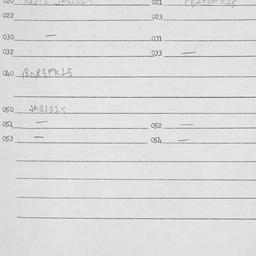 020 021
022 023
030 — 031
032 033 —
040 BORSMKIS
050 JAGIDIS
051 — 052 —
053 — 054 —